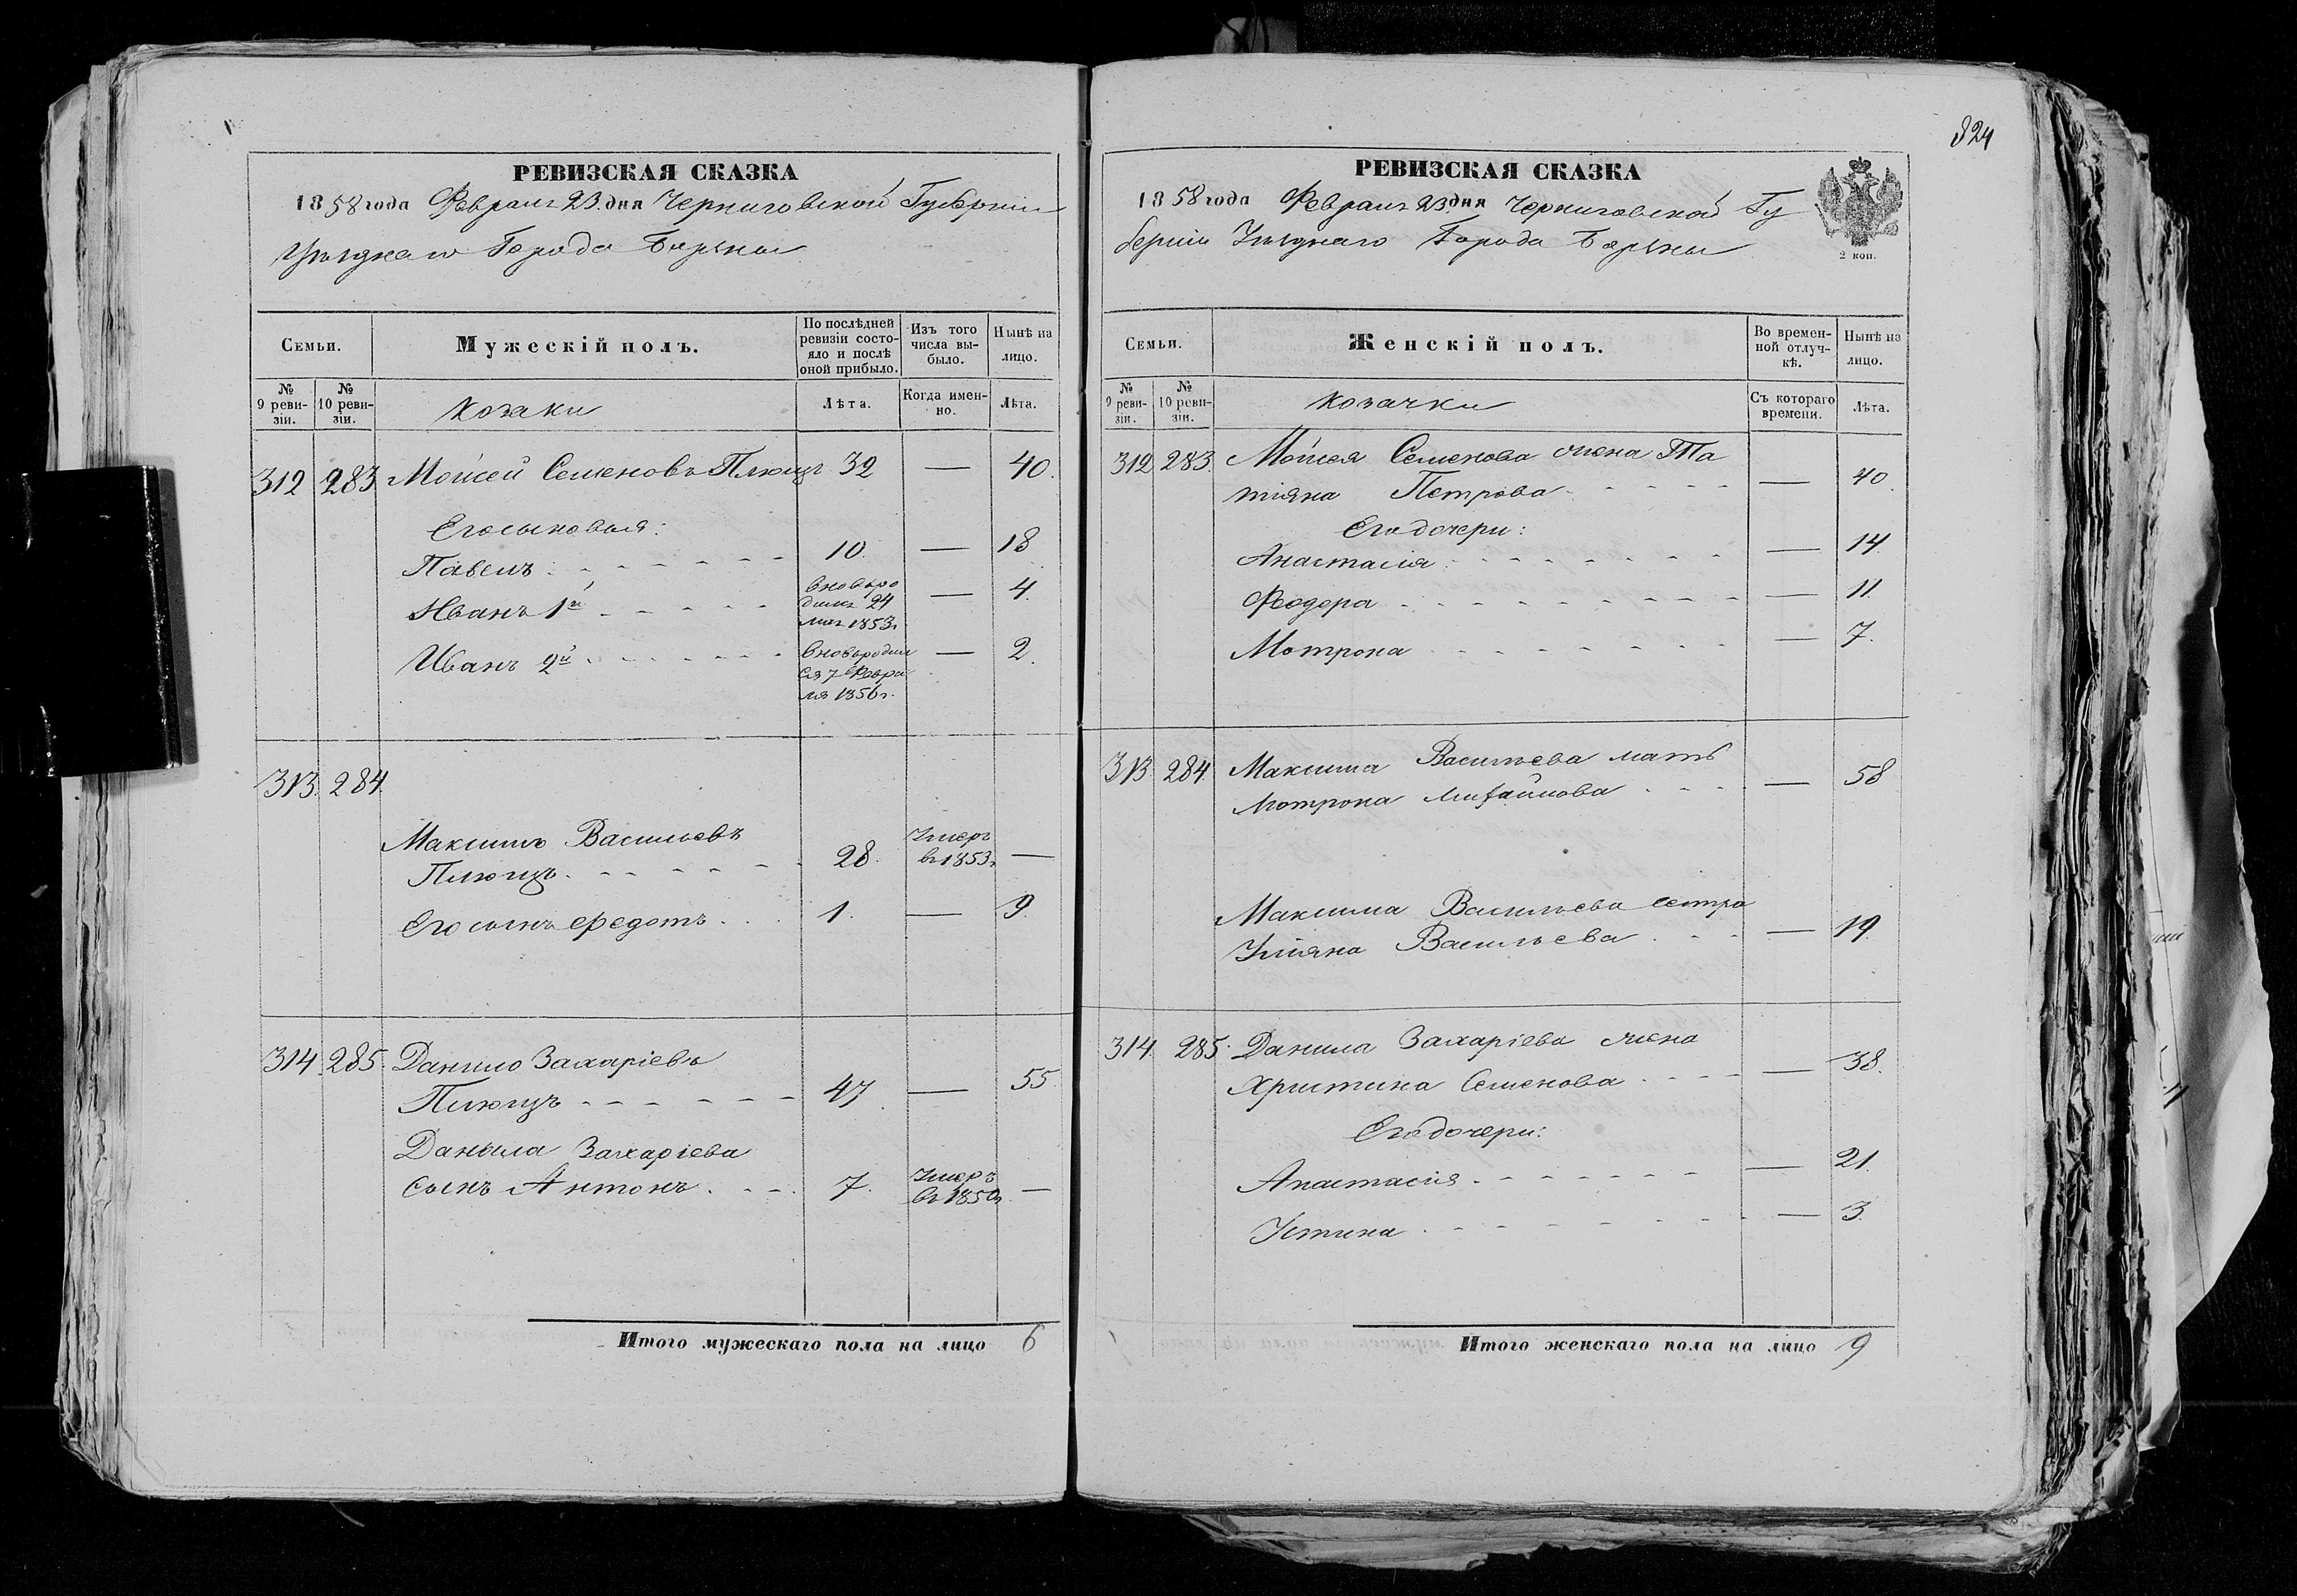 324
РЕВИЗСКАЯ СКАЗКА
1858 года Февраля 23 дня Черниговской Губерніи
Уѣзднаго Города Борзны
Семьи.
Мужескій полъ.
По послѣдней ревизіи состояло и послѣ оной прибыло.
Изъ того числа выбыло.
Нынѣ на лицо.
№ 9 ревизіи.
№ 10 ревизіи.
Козаки
Лѣта.
Когда именно.
Лѣта.
312 283 Моисей Семеновъ Плющъ 32 — 40.
Его сыновья:
Павелъ 10. — 18
Иванъ 1й вновь ро
24
1853г — 4.
Иванъ 2й вновь родил
ся 7 Февра
ля 1856г. — 2.
313. 284.
Максимъ Васильевъ
Плющъ 28. Умеръ
въ 1853г —
Его сынъ Федотъ 1. — 9.
314. 285. Данило Захаріевъ
Плющъ 47. — 55.
Данила Захаріева
сынъ Антонъ 7. Умеръ
въ 1850г —
Итого мужескаго пола на лицо 6
РЕВИЗСКАЯ СКАЗКА
1858 года Февраля 23 дня Черниговской Гу
берніи Уѣзднаго Города Борзны
2 коп.
Семьи.
Женскій полъ.
Во временной отлучкѣ.
Нынѣ на лицо.
№ 9 ревизіи.
№ 10 ревизіи.
Козачки
Съ котораго времени.
Лѣта.
312 283. Моисея Семенова жена Та
тіяна Петрова — 40.
Его дочери:
Анастасія — 14.
Феодора — 11.
Мотрона — 7.
313. 284. Максима Васильева мать
Мотрона Михайлова — 58
Максима Васильева сестра
Уліяна Васильева — 19.
314. 285. Данила Захаріева жена
Христина Семенова — 38.
Его дочери:
Анастасія — 21.
Устина — 3.
Итого женскаго пола на лицо 9